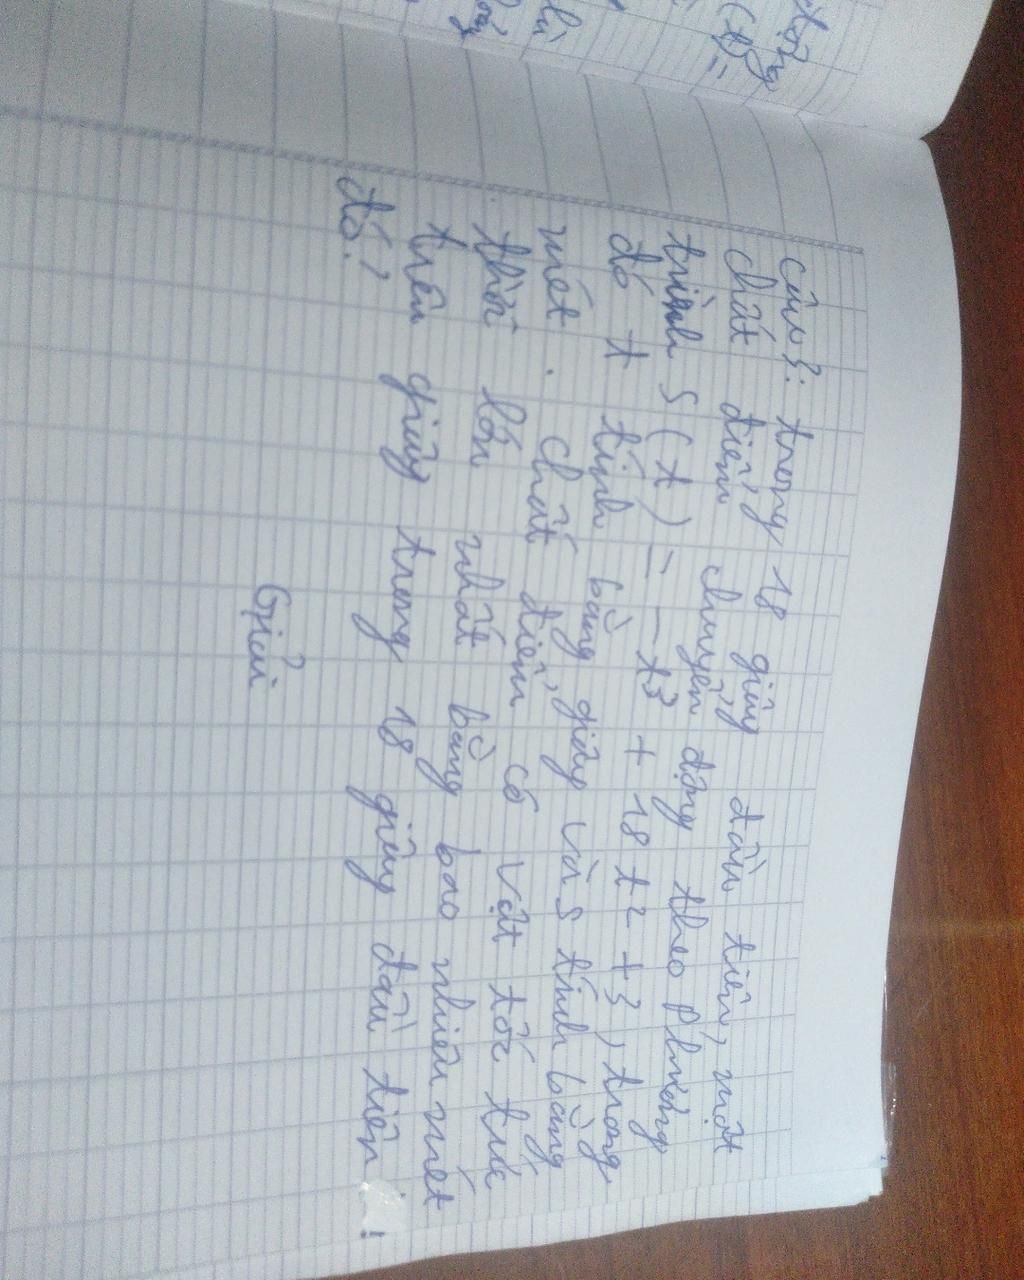 Câu 3: trong 18 giây đầu tiên, một
chất điểm chuyển động theo phương
trình S(t) = -t³ + 18t² + 3, trong
đó t tính bằng giây và s tính bằng
mét. chất điểm có vật tốc tức
thời lớn nhất bằng bao nhiêu mét
trên giây trong 18 giây đầu tiên
đó?
Giải